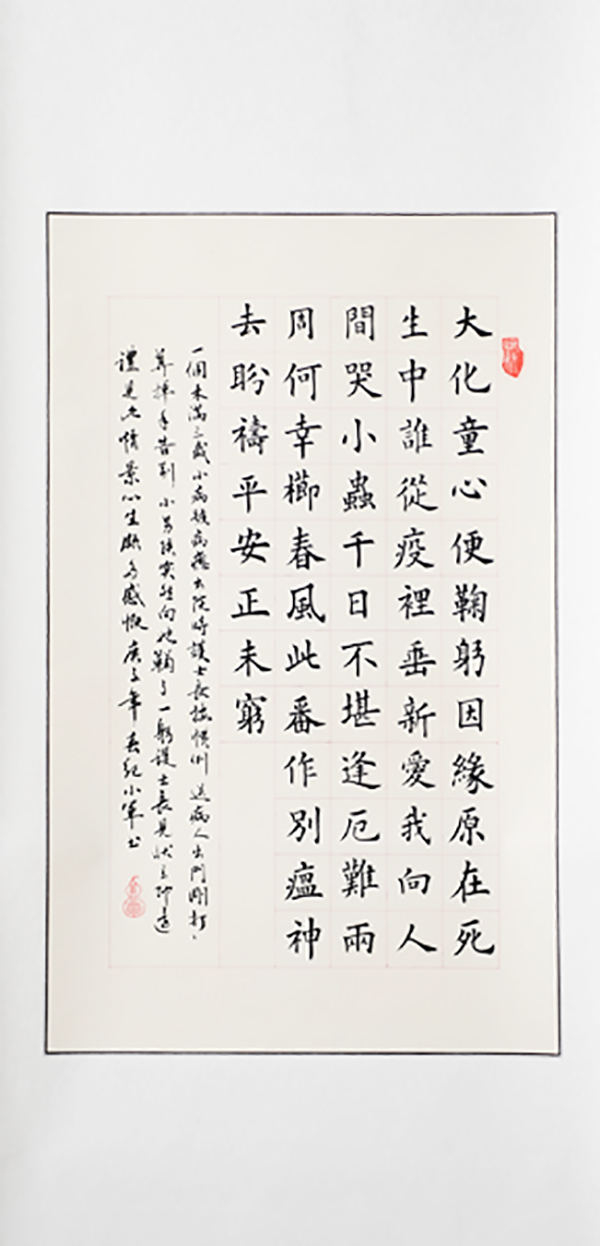 大化童心便鞠躬因緣原在死
生中誰從疫裡垂新愛我向人
間哭小蟲千日不堪逢厄難兩
周何幸櫛春風此番作別瘟神
去盼禱平安正未窮
一個未滿三歲小病孩病癒出院時護士長按慣例送病人出門剛打
算揮手告別小男孩突然向她鞠了一躬護士長見狀立即還
禮見此情景心生頗多感慨庚子年春紀小軍書